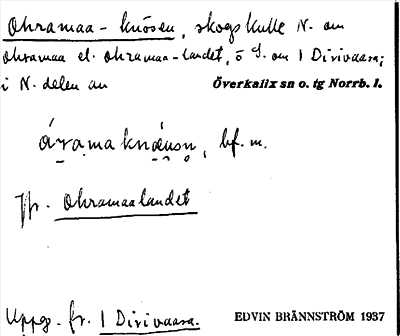 Ohramaa-knösen, skogskulle N. om
Ohramaa el. Ohramaa-landet, ö S. om 1 Dirivaara;
i N. delen av Överkalix sn o. tg Norrb. l.
áramaknǝusn, bf. m.
Jfr. Ohramaalandet
Uppg. fr. 1 Dirivaara.
EDVIN BRÄNNSTRÖM 1937